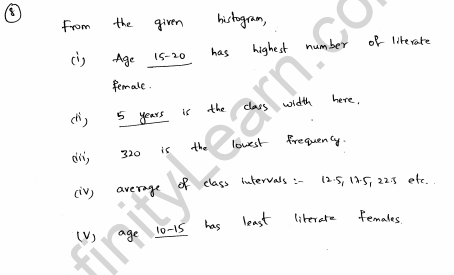 8
From the given histogram,
(i) Age 15-20 has highest number of literate
female.
(ii) 5 years is the class width here.
(iii) 320 is the lowest frequency.
(iv) average of class intervals :- 12.5, 17.5, 22.5 etc..
(V) age 10-15 has least literate females.
finityLearn.com